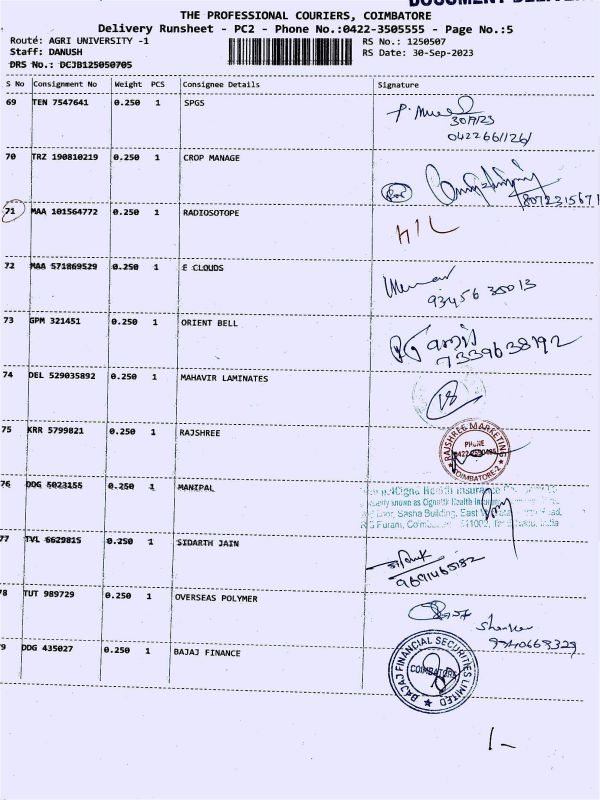 DOCUMENT DELIVER
THE PROFESSIONAL COURIERS, COIMBATORE
Delivery Runsheet - PC2 - Phone No.:0422-3505555 - Page No.:5
Route: AGRI UNIVERSITY -1
RS No.: 1250507
Staff: DANUSH
RS Date: 30-Sep-2023
DRS No.: DCJB125050705
S No Consignment No Weight PCS Consignee Details Signature
69 TEN 7547641 0.250 1 SPGS
30/9/23
0422661126/
70 TRZ 190810219 0.250 1 CROP MANAGE
8072315671
71 MAA 101564772 0.250 1 RADIOSOTOPE
72 MAA 571869529 0.250 1 E CLOUDS
93456 35013
73 GPM 321451 0.250 1 ORIENT BELL
7339638192
74 DEL 529035892 0.250 1 MAHAVIR LAMINATES
18
75 KRR 5799821 0.250 1 RAJSHREE
RAJSHREE MARKETING
PHONE
COIMBATORE-2
76 DDG 5023155 0.250 1 MANIPAL
Health Insurance
known as Health
Sasha Building, East
Puram,
77 TVL 6629815 0.250 1 SIDARTH JAIN
9691465182
78 TUT 989729 0.250 1 OVERSEAS POLYMER
79 DDG 435027 0.250 1 BAJAJ FINANCE
BAJAJ FINANCIAL SECURITIES LIMITED
COIMBATORE